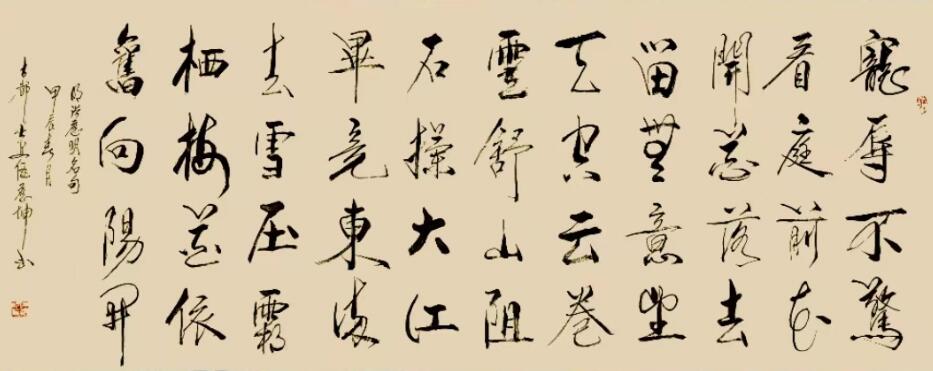 寵辱不驚
看庭前花
開花落去
留無意望
天空云卷
雲舒山阻
石大江
畢竟東流
去雪压霜
栖梅花依
舊向陽開
明洪應明名句
甲辰春月
古都長安